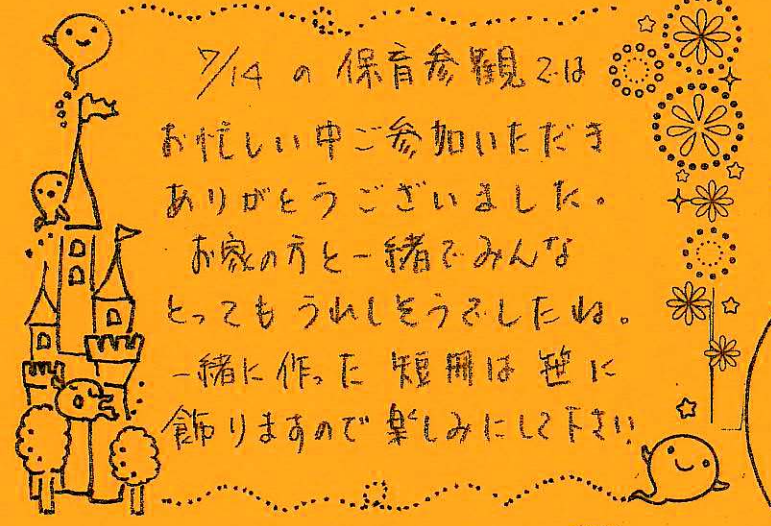 7/14 の 保育参観では
お忙しい中ご参加いただき
ありがとうございました。
お家の方と一緒でみんな
とってもうれしそうでしたね。
一緒に作った 短冊は 笹に
飾りますので楽しみにして下さい